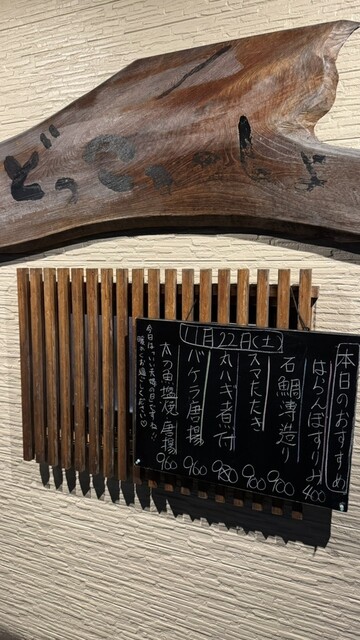 どっこいしょ
本日のおすすめ
11月22日(土)
はらんぼすりみ 400
石鯛薄造り 900
スマたたき 900
丸ハギ煮付 980
バケラ唐揚 960
太刀魚塩焼・唐揚 960
今日は、いい夫婦の日ですね!!
暖かくお過ごしください♡